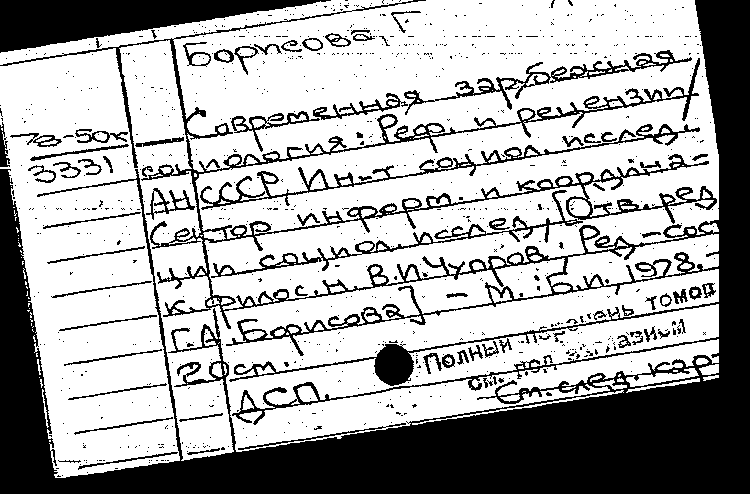 Борисова, Г
Современная зарубежная
78-50к
3331
социология: Реф. и рецензии/
АН СССР, Ин-т социол. исслед.
Сектор информ. и координа-
ции социол. исслед.; [Отв. ред
к. филос. н. В.И. Чупров; Ред.-сост
Г.А. Борисова]. - М.: Б.и., 1978. -
20см.
Полный перечень томов
см. под заглавием
ДСП.
См. след. карт